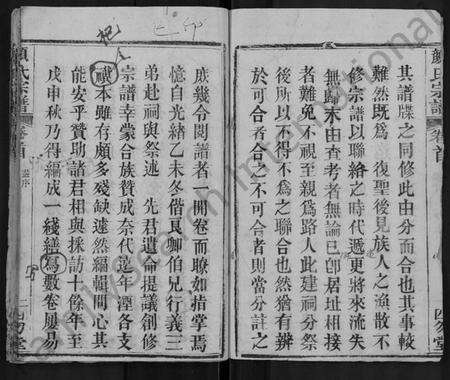 顏氏宗譜
卷首
四勿堂
其譜牒之同修此由分而合也其事較
難然既爲 復聖後見族人之渙散不
修宗譜以聯絡之時代遞更將來流失
無歸末由查考者無論已卽居址相接
者難免不視至親爲路人此建祠分祭
後所以不得不為之聯合也然猶有辨
於可合者合之不可合者則當分計之
庶幾令閱譜者一開卷而瞭如指掌焉
憶自光緒乙未冬偕夏卿伯兄行義三
弟赴祠與祭述 先君遺命提議創修
宗譜幸蒙合族贊成奈代遠年湮各支
底本雖有頗多殘缺遽然編輯問心其
能安乎贊助諸君相與採訪十餘年至
戊申秋乃得編成一綫繕寫數卷屢易
顏氏宗譜
卷首
四勿堂
aminggenealogy international